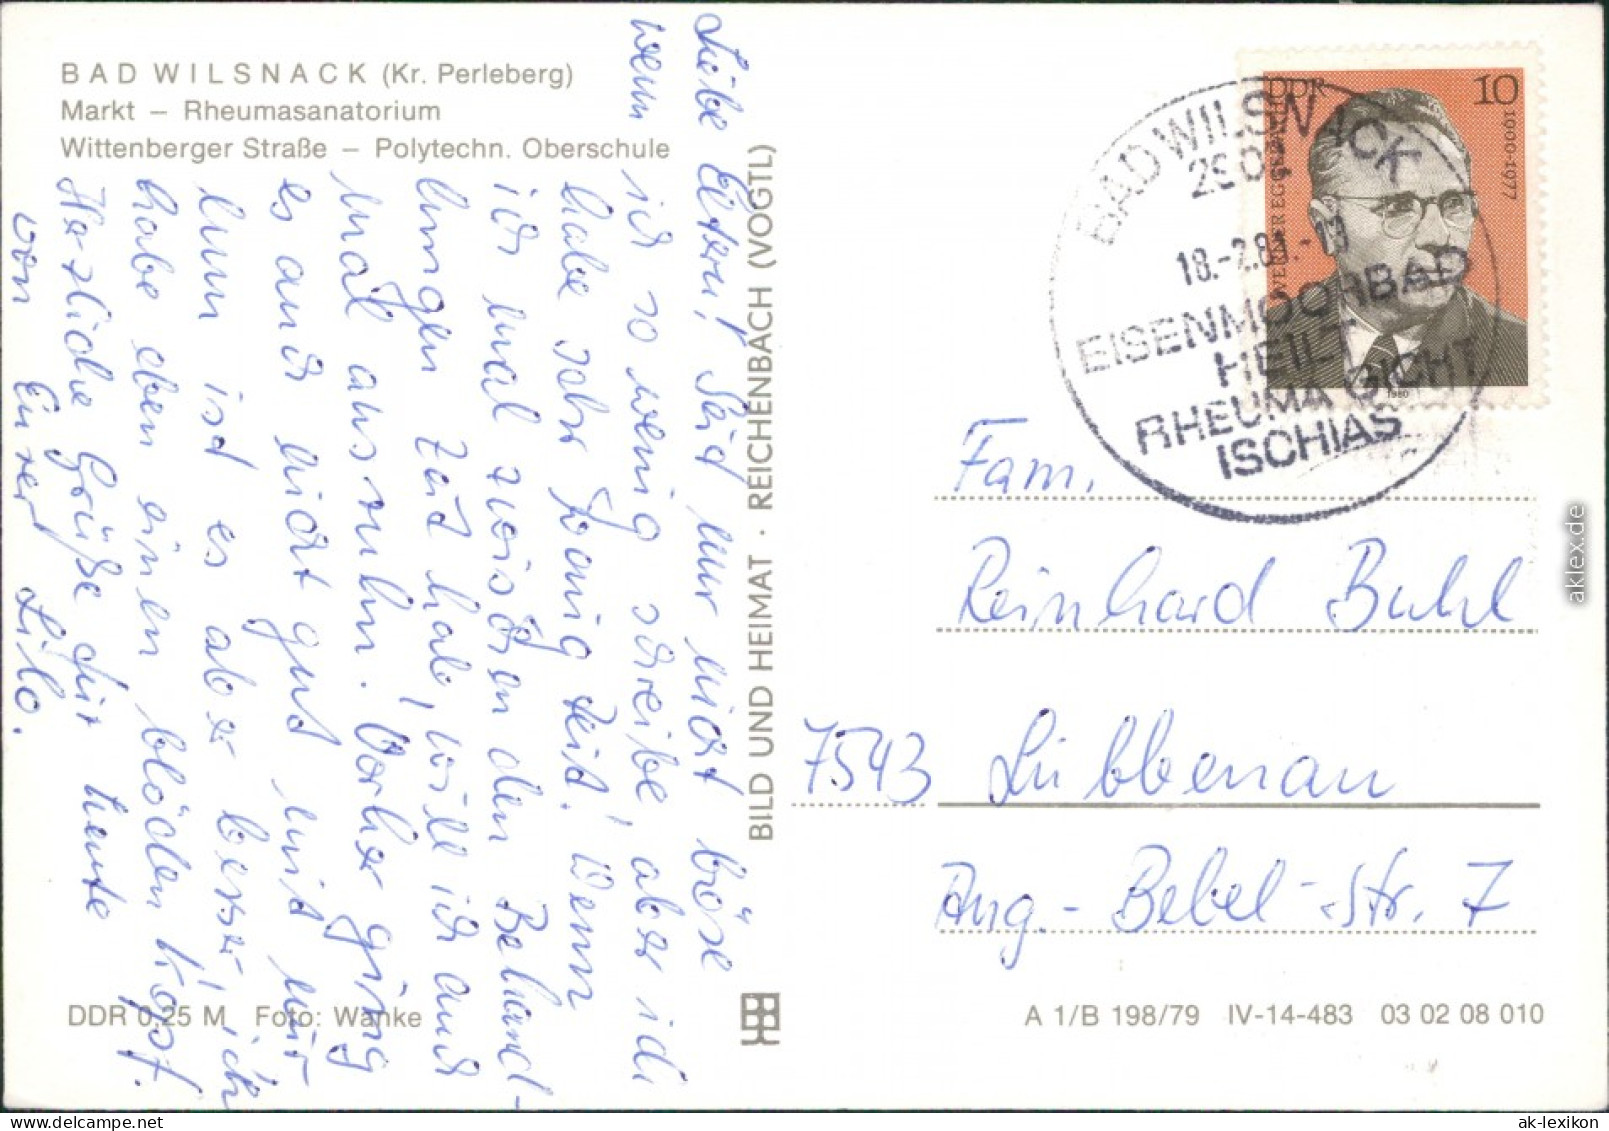 BAD WILSNACK (Kr. Perleberg)
Markt – Rheumasanatorium
Wittenberger Straße – Polytechn. Oberschule
Liebe Eltern! Seid nur nicht böse
wenn ich so wenig schreibe, aber ich
habe sehr wenig Zeit! Wenn
ich mal zwischen den Behand-
lungen Zeit hab, will ich auch
mal ausruhn. Vorher ging
es auch nicht gut mit mir
nun ist es aber besser, ich
habe eben einen blöden Kopf.
Herzliche Grüße für heute
von Eurer Lilo.
BILD UND HEIMAT · REICHENBACH (VOGTL)
DDR 0,25 M Foto: Wanke
DDR
10
WERNER EGGERATH
1900-1977
1980
BAD WILSNACK
EISENMOORBAD
HEILT
RHEUMA GICHT
ISCHIAS
Fam.
Reinhard Buhl
7543 Lübbenau
Aug.-Bebel-Str. 7
A 1/B 198/79 IV-14-483 03 02 08 010
aklex.de
ak-lexikon